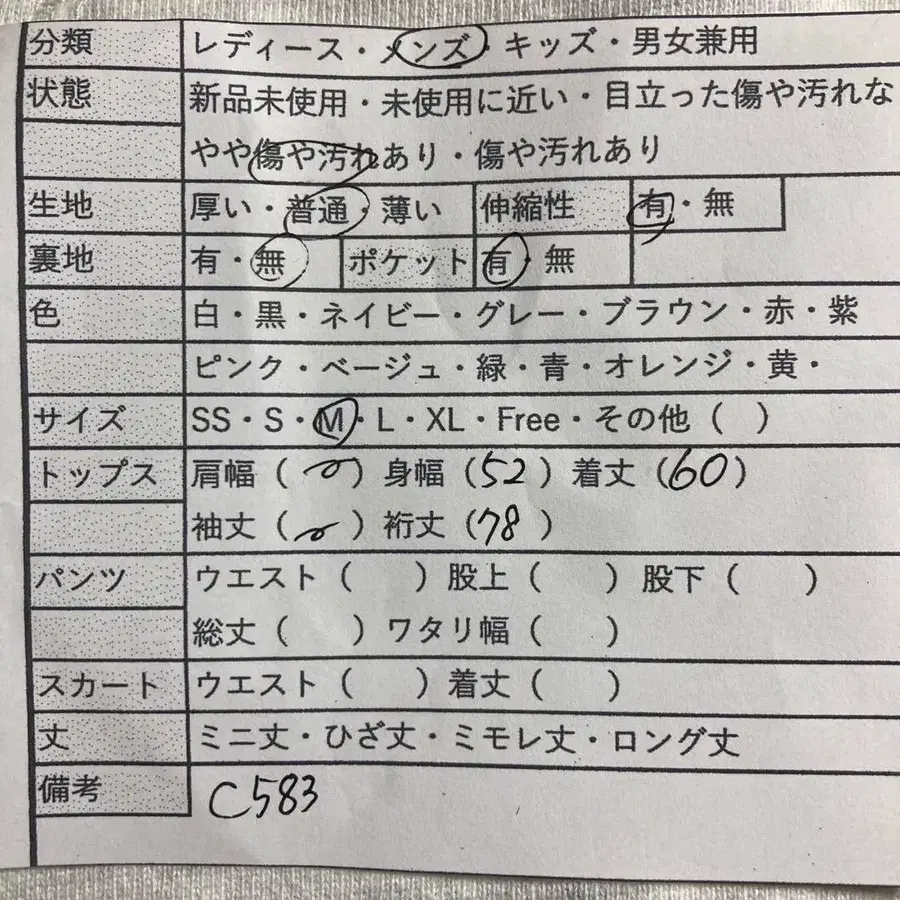 分類 レディース・メンズ・キッズ・男女兼用
状態 新品未使用・未使用に近い・目立った傷や汚れな
やや傷や汚れあり・傷や汚れあり
生地 厚い・普通・薄い 伸縮性 有・無
裏地 有・無 ポケット 有・無
色 白・黒・ネイビー・グレー・ブラウン・赤・紫
ピンク・ベージュ・緑・青・オレンジ・黄・
サイズ SS・S・M・L・XL・Free・その他（ ）
トップス 肩幅（ ）身幅（52）着丈（60）
袖丈（ ）裄丈（78）
パンツ ウエスト（ ）股上（ ）股下（ ）
総丈（ ）ワタリ幅（ ）
スカート ウエスト（ ）着丈（ ）
丈 ミニ丈・ひざ丈・ミモレ丈・ロング丈
備考 C583